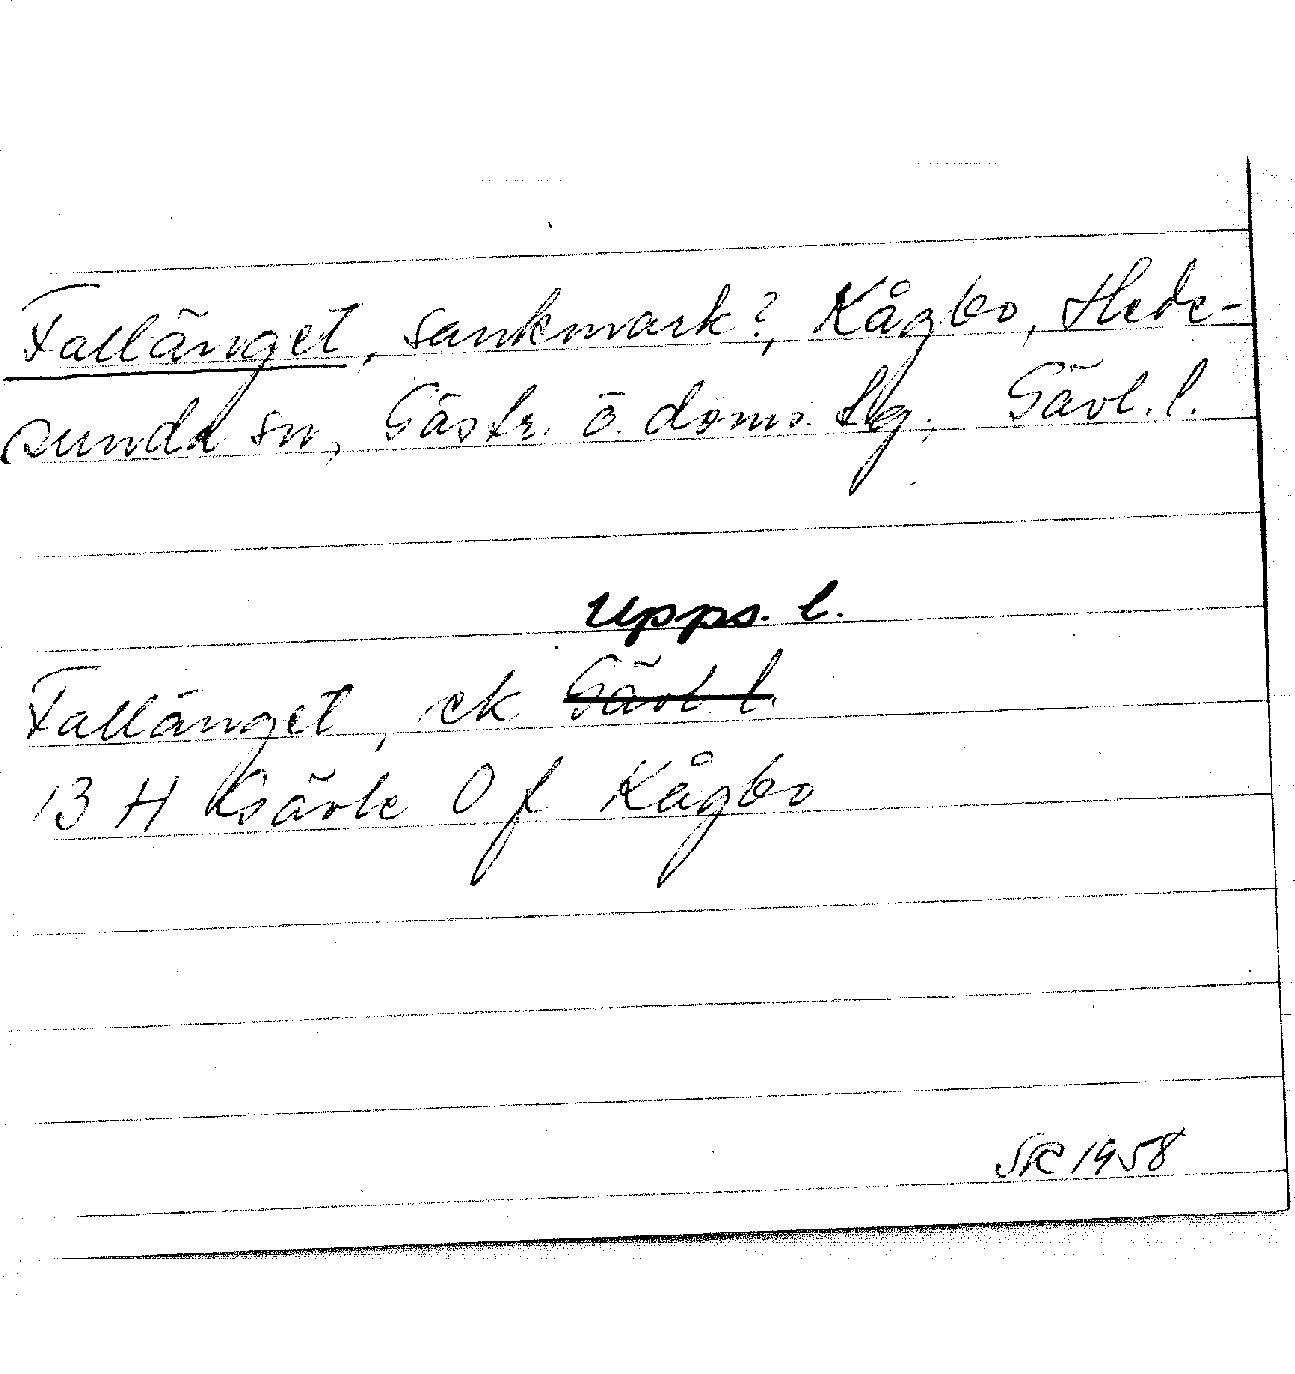 Fallänget, sankmark?, Kågbo, Hede-
sunda sn, Gästr. ö. doms. tg. Gävl. l.
Upps. l.
Fallänget, ek Gävl l.
13 H Gävle 0 f Kågbo
SR 1958